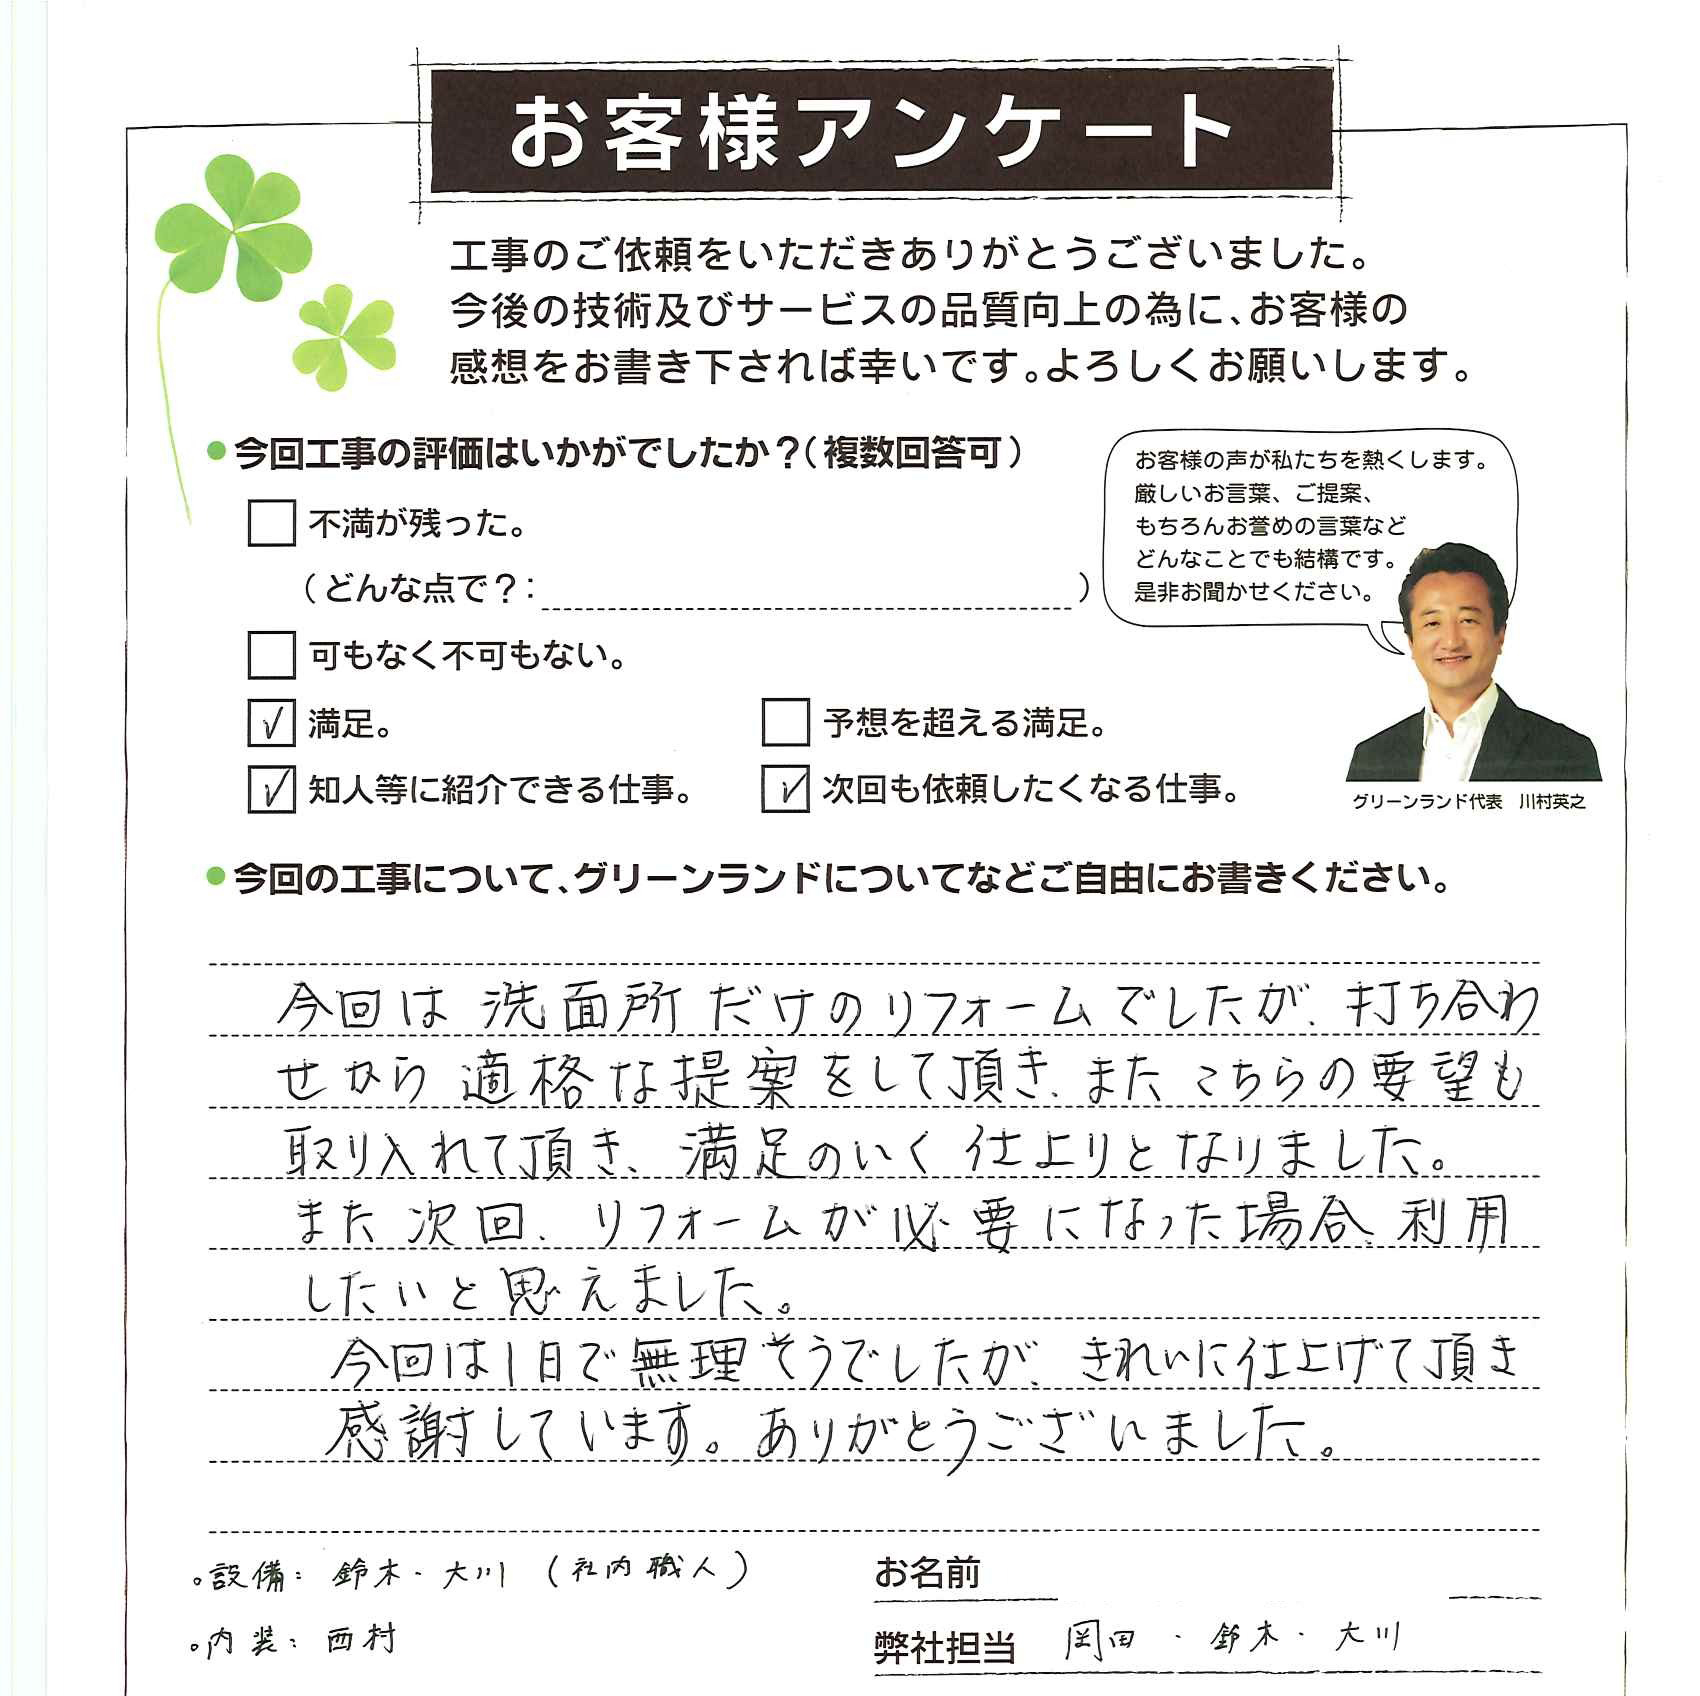 お客様アンケート
工事のご依頼をいただきありがとうございました。
今後の技術及びサービスの品質向上の為に、お客様の
感想をお書き下されば幸いです。よろしくお願いします。
今回工事の評価はいかがでしたか?(複数回答可)
お客様の声が私たちを熱くします。
厳しいお言葉、ご提案、
もちろんお誉めの言葉など
どんなことでも結構です。
是非お聞かせください。
不満が残った。
(どんな点で?: )
可もなく不可もない。
✓ 満足。
予想を超える満足。
✓ 知人等に紹介できる仕事。
✓ 次回も依頼したくなる仕事。
グリーンランド代表 川村英之
今回の工事について、グリーンランドについてなどご自由にお書きください。
今回は洗面所だけのリフォームでしたが、打ち合わ
せから適格な提案をして頂き、またこちらの要望も
取り入れて頂き、満足のいく仕上りとなりました。
また次回、リフォームが必要になった場合、利用
したいと思えました。
今回は1日で無理そうでしたが、きれいに仕上げて頂き
感謝しています。ありがとうございました。
。設備: 鈴木・大川 (社内職人)
お名前
。内装: 西村
弊社担当 岡田・鈴木・大川